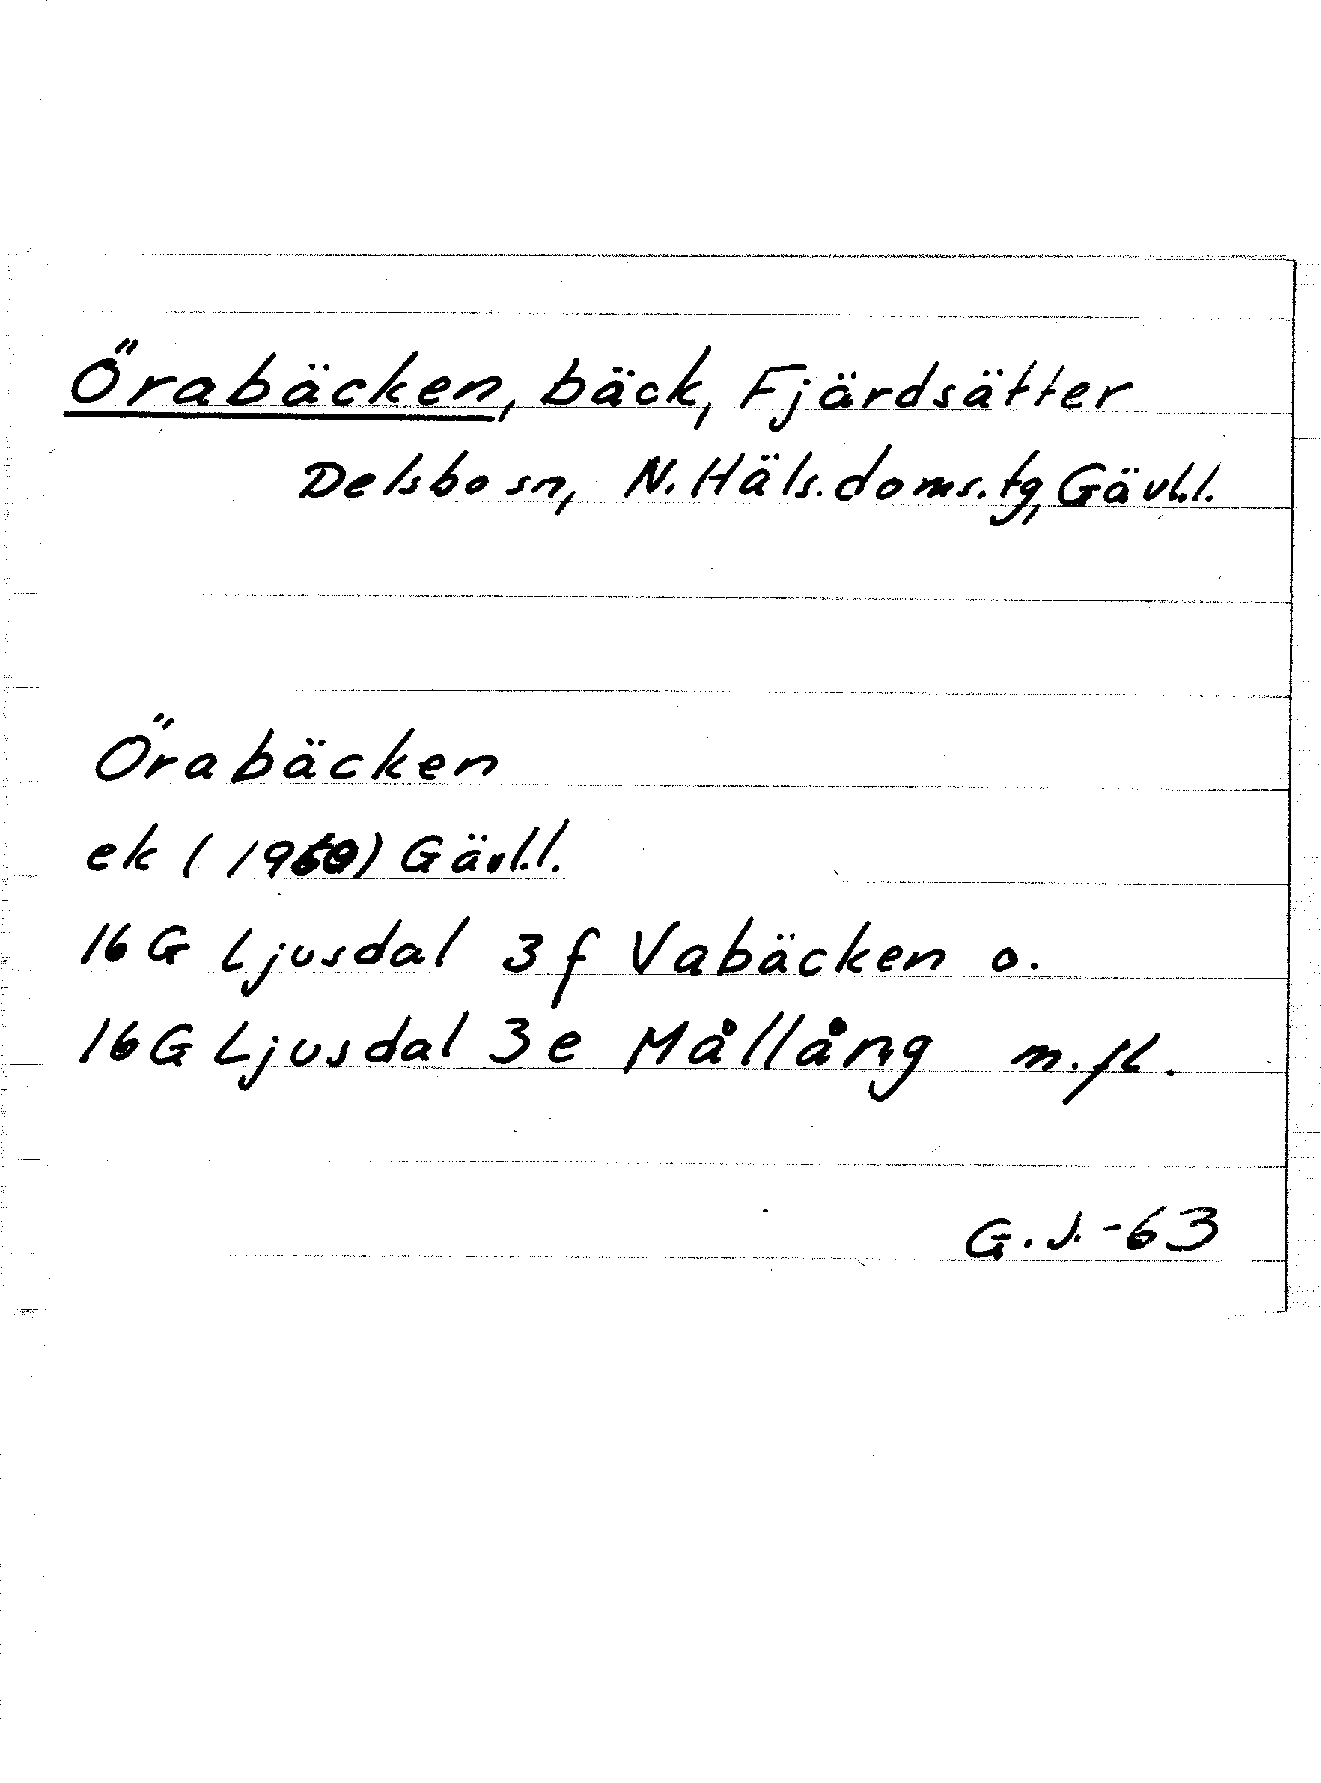 Örabäcken, bäck, Fjärdsätter
Delsbo sn, N. Häls. doms. tg, Gävl.l.
Örabäcken
ek (1960) Gävl.l.
16 G Ljusdal 3 f Vabäcken o.
16 G Ljusdal 3 e Mållång m.fl.
G.J. -63